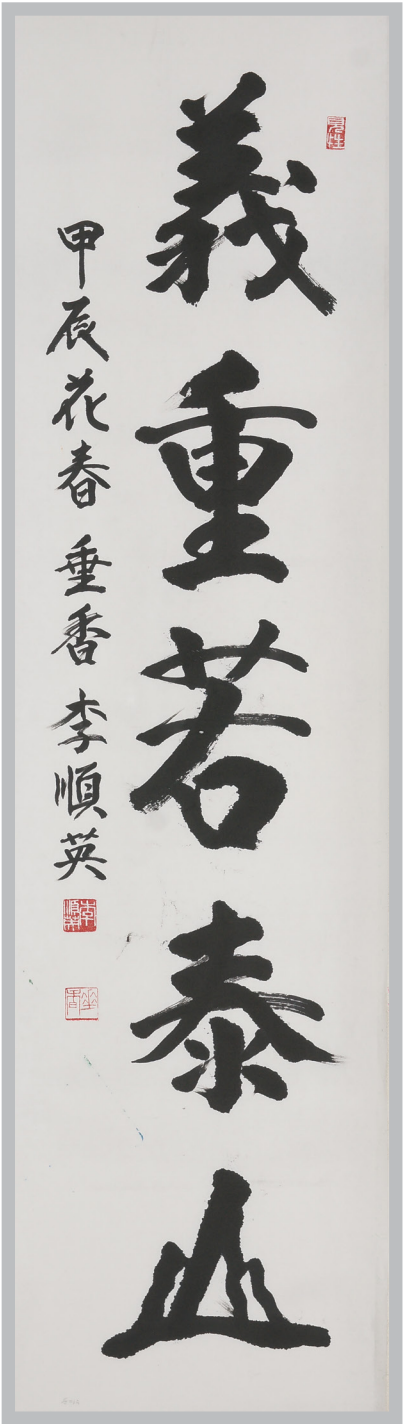 義重若泰山
甲辰花春 垂香 李順英